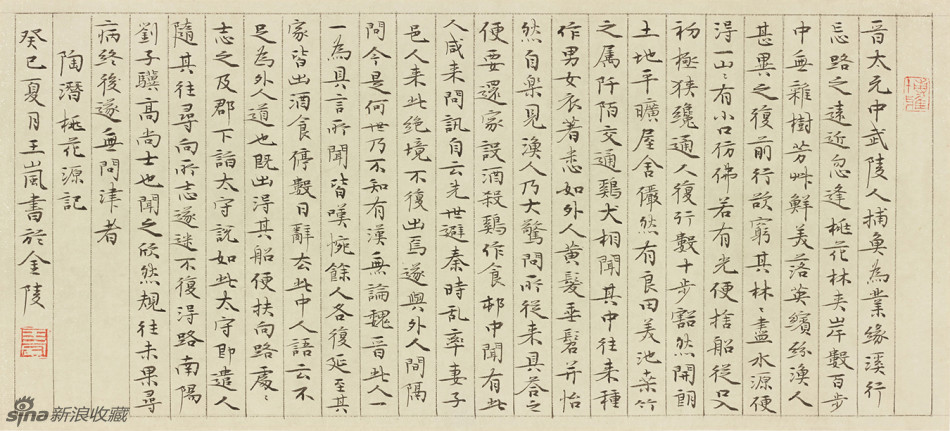 晉太元中武陵人捕魚為業緣溪行
忘路之遠近忽逢桃花林夾岸數百步
中無雜樹芳艸鮮美落英繽紛漁人
甚異之復前行欲窮其林〻盡水源便
得一山〻有小口彷佛若有光便捨船從口入
初極狹纔通人復行數十步豁然開朗
土地平曠屋舍儼然有良田美池桑竹
之屬阡陌交通鷄犬相聞其中往来種
作男女衣著悉如外人黃髮垂髫并怡
然自樂見漁人乃大驚問所從来具荅之
便要還家設酒殺鷄作食邨中聞有此
人咸来問訊自云先世避秦時亂率妻子
邑人来此絕境不復出焉遂與外人間隔
問今是何世乃不知有漢無論魏晉此人一
一為具言所聞皆嘆惋餘人各復延至其
家皆出酒食停數日辭去此中人語云不
足為外人道也既出得其船便扶向路處〻
志之及郡下詣太守說如此太守即遣人
隨其往尋向所志遂迷不復得路南陽
劉子驥高尚士也聞之欣然規往未果尋
病終後遂無問津者
陶潛桃花源記
癸巳夏月王嵐書於金陵
sina新浪收藏